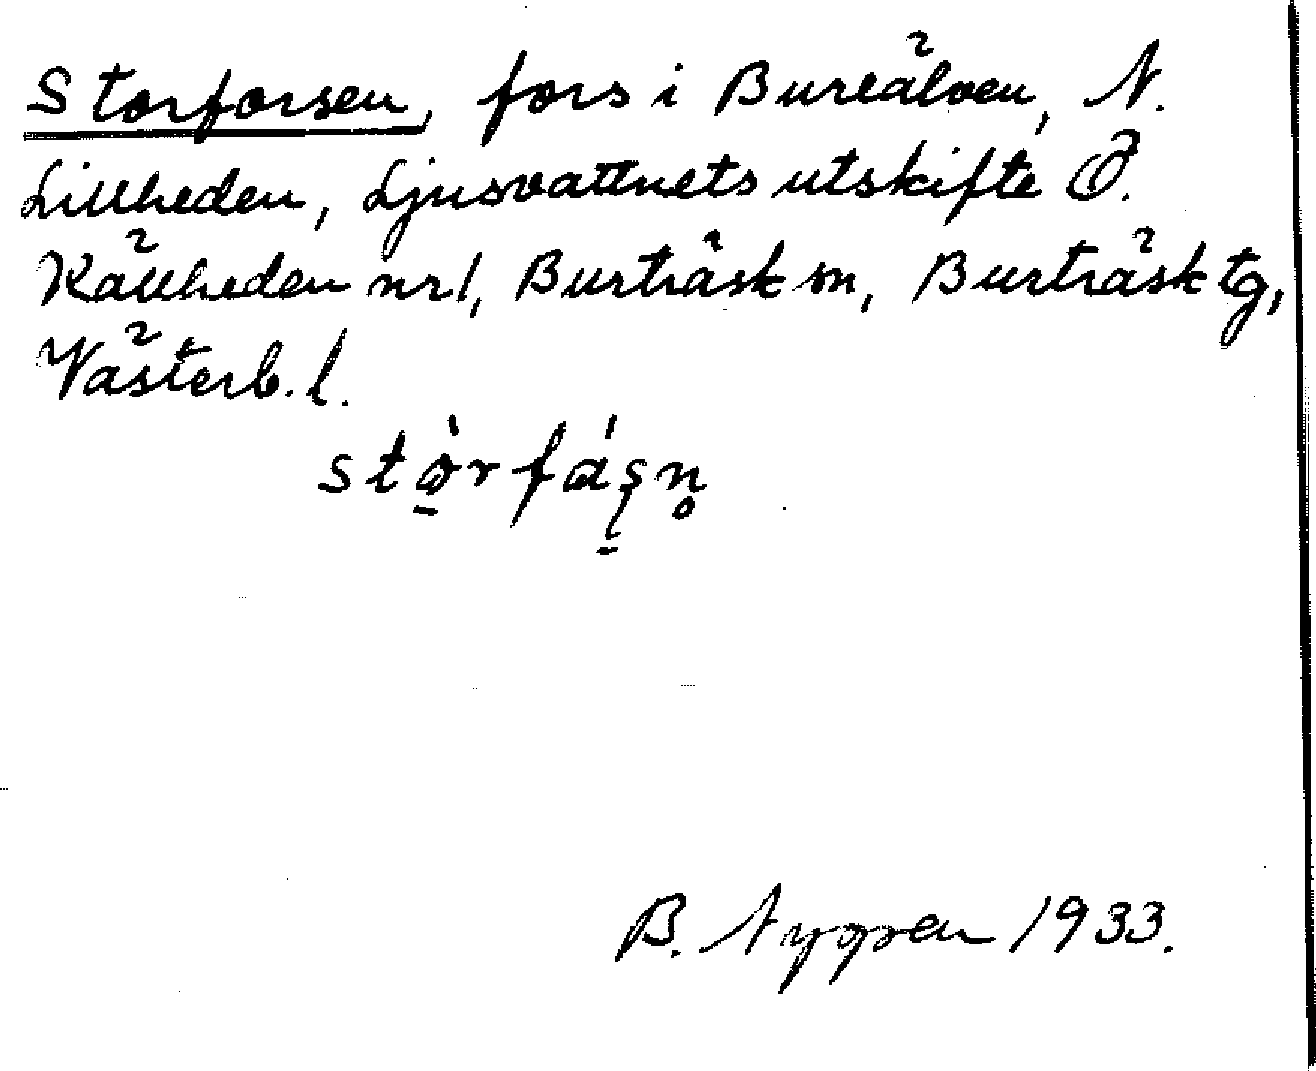 Storforsen, fors i Bureälven, N.
Lillheden, Ljusvattnets utskifte Ö.
Källheden nr 1, Burträsk sn, Burträsk tg,
Västerb. l.
B. Nygren 1933.